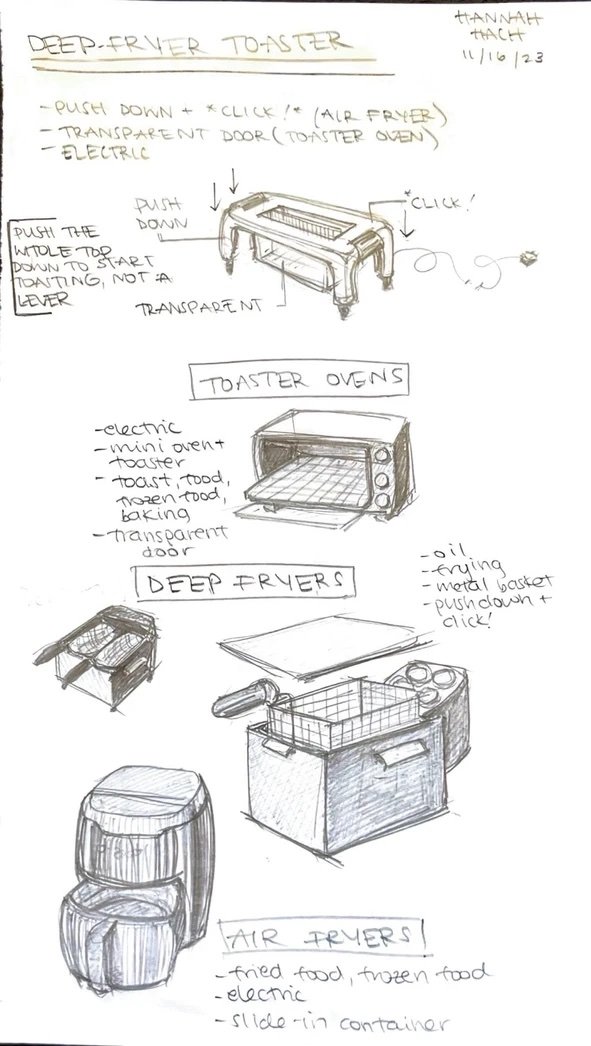 DEEP-FRYER TOASTER
HANNAH
HACH
11/16/23
- PUSH DOWN + *CLICK!* (AIR FRYER)
- TRANSPARENT DOOR (TOASTER OVEN)
- ELECTRIC
PUSH
DOWN
*CLICK!
PUSH THE
WHOLE TOP
DOWN TO START
TOASTING, NOT A
LEVER
TRANSPARENT
TOASTER OVENS
- electric
- mini oven +
toaster
- toast, food,
frozen food,
baking
- transparent
door
DEEP FRYERS
- oil
- frying
- metal basket
- push down +
click!
AIR FRYERS
- fried food, frozen food
- electric
- slide-in container